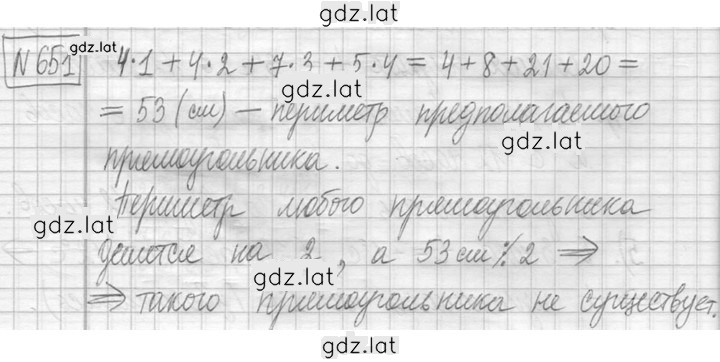 gdz.lat
N 651 gdz.lat 4·1 + 4·2 + 7·3 + 5·4 = 4 + 8 + 21 + 20 =
gdz.lat
= 53 (см) — периметр предполагаемого
gdz.lat
прямоугольника.
Периметр любого прямоугольника
gdz.lat
делится на 2, а 53 см ⁒ 2 ⇒
gdz.lat
⇒ такого прямоугольника не существует.
gdz.lat